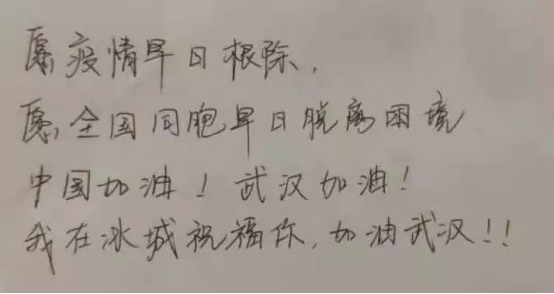 愿疫情早日根除,
愿全国同胞早日脱离困境
中国加油!武汉加油!
我在冰城祝福你,加油武汉!!